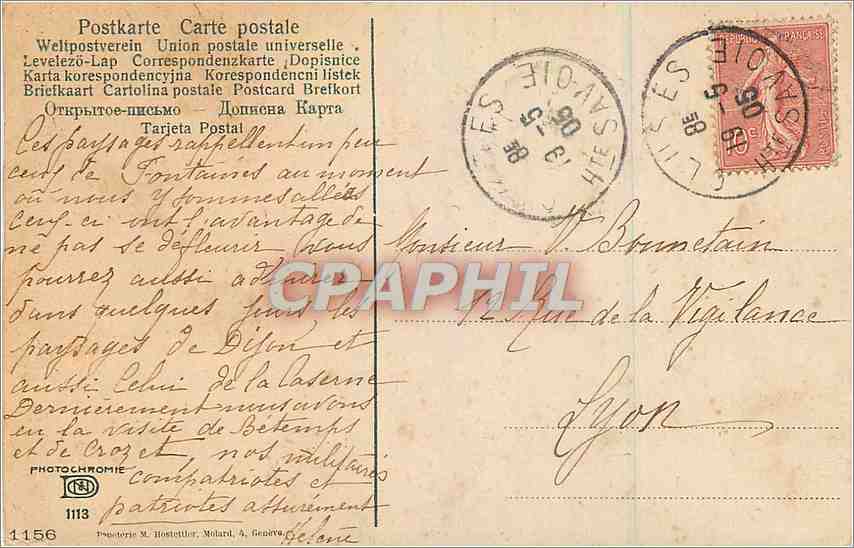 Postkarte Carte postale
Weltpostverein Union postale universelle.
Levelező-Lap Correspondenzkarte Dopisnice
Karta korespondencyjna Korespondencni listek
Briefkaart Cartolina postale Postcard Brefkort
Открытое-письмо — Дописна Карта
Tarjeta Postal
Ces paysages rappellent un peu
ceux de Fontaines au moment
où nous y sommes allées
ceux-ci ont l'avantage de
ne pas se défleurir, vous
pourrez aussi admirer
dans quelques jours les
paysages de Dijon et
aussi celui de la Caserne
Dernièrement nous avons
eu la visite de Betemps
et de Crozet, nos militaires
compatriotes et
patriotes assurément
Hélène
PHOTOCHROMIE
1113
1156
Papeterie M. Hostettler, Molard, 4, Genève.
HTE SAVOIE
8E
19 -5
05
REPUBLIQUE FRANÇAISE
10 c
HTE SAVOIE
8E
19 -5
05
Monsieur V. Bonnetain
12 Rue de la Vigilance
Lyon
CPAPHIL